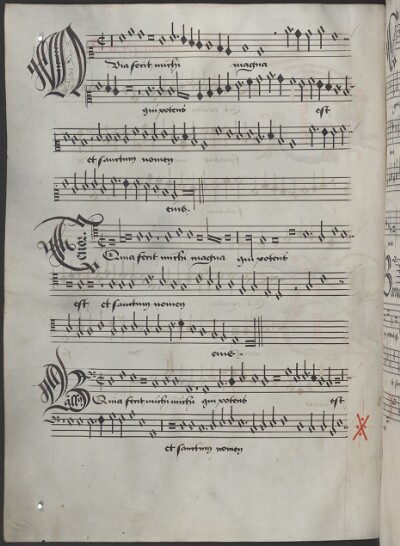 Quia fecit michi magna
qui potens est
et sanctum nomen
eius.
Tenor.
Quia fecit michi magna qui potens
est et sanctum nomen
eius.
Bassus
Quia fecit michi michi qui potens est
et sanctum nomen